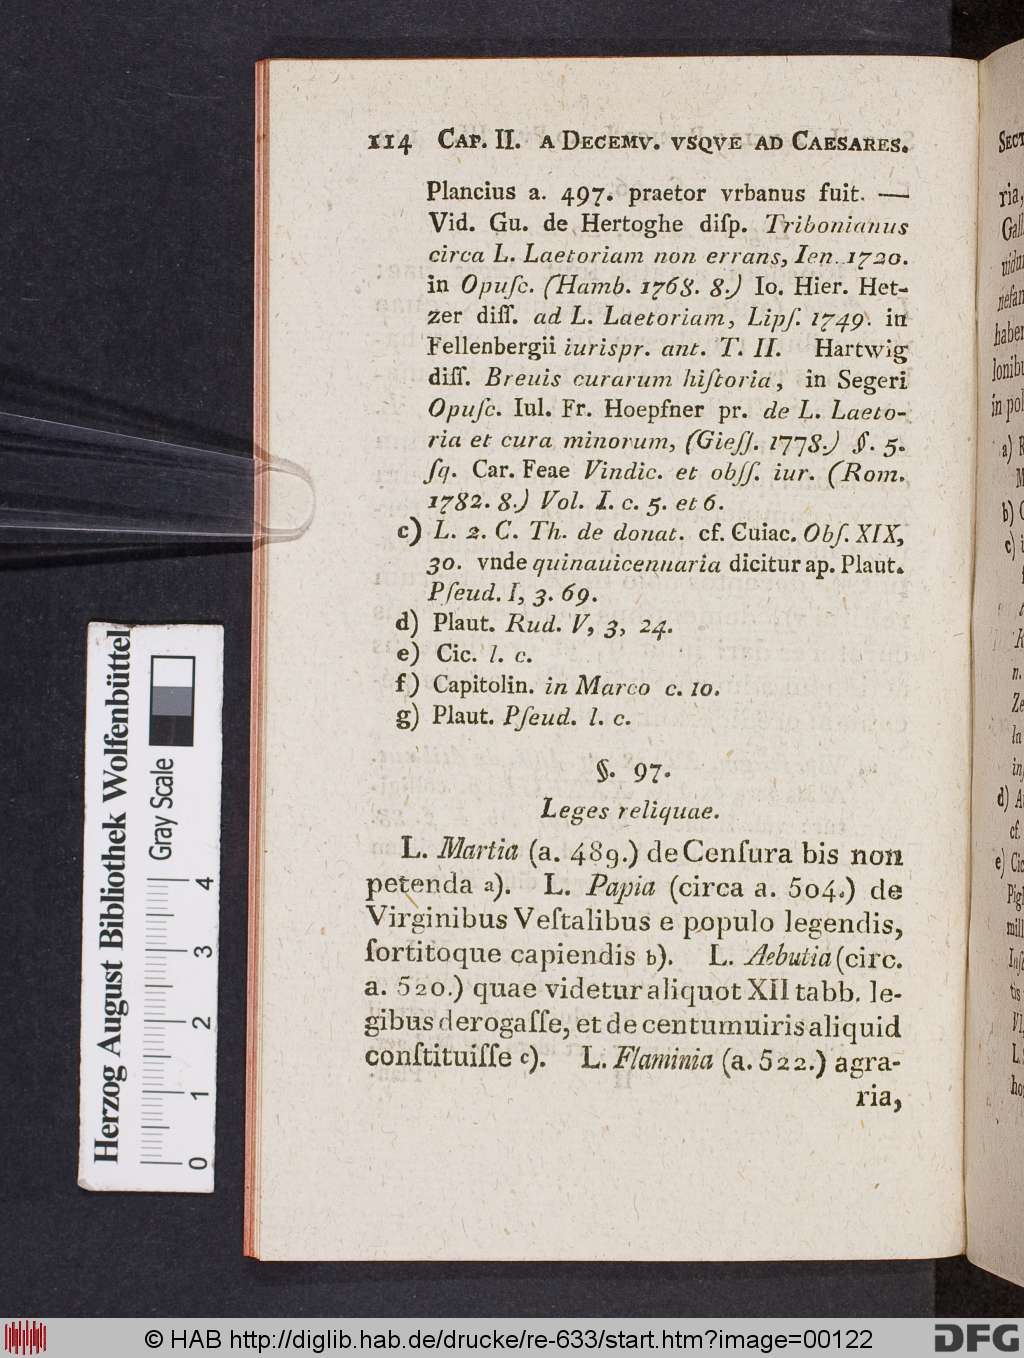 114 CAP. II. A DECEMV. VSQVE AD CAESARES.
Plancius a. 497. praetor vrbanus fuit. —
Vid. Gu. de Hertoghe diſp. Tribonianus
circa L. Laetoriam non errans, Ien. 1720.
in Opuſc. (Hamb. 1768. 8.) Io. Hier. Het-
zer diſſ. ad L. Laetoriam, Lipſ. 1749. in
Fellenbergii iurispr. ant. T. II. Hartwig
diſſ. Breuis curarum hiſtoria, in Segeri
Opuſc. Iul. Fr. Hoepfner pr. de L. Laeto-
ria et cura minorum, (Gieſſ. 1778.) §. 5.
ſq. Car. Feae Vindic. et obſſ. iur. (Rom.
1782. 8.) Vol. I. c. 5. et 6.
c) L. 2. C. Th. de donat. cf. Cuiac. Obſ. XIX,
30. vnde quinauicennaria dicitur ap. Plaut.
Pſeud. I, 3. 69.
d) Plaut. Rud. V, 3, 24.
e) Cic. l. c.
f) Capitolin. in Marco c. 10.
g) Plaut. Pſeud. l. c.
§. 97.
Leges reliquae.
L. Martia (a. 489.) de Cenſura bis non
petenda a). L. Papia (circa a. 504.) de
Virginibus Veſtalibus e populo legendis,
ſortitoque capiendis b). L. Aebutia (circ.
a. 520.) quae videtur aliquot XII tabb. le-
gibus derogaſſe, et de centumuiris aliquid
conſtituiſſe c). L. Flaminia (a. 522.) agra-
ria,
Herzog August Bibliothek Wolfenbüttel
Gray Scale
0 1 2 3 4
© HAB http://diglib.hab.de/drucke/re-633/start.htm?image=00122
DFG